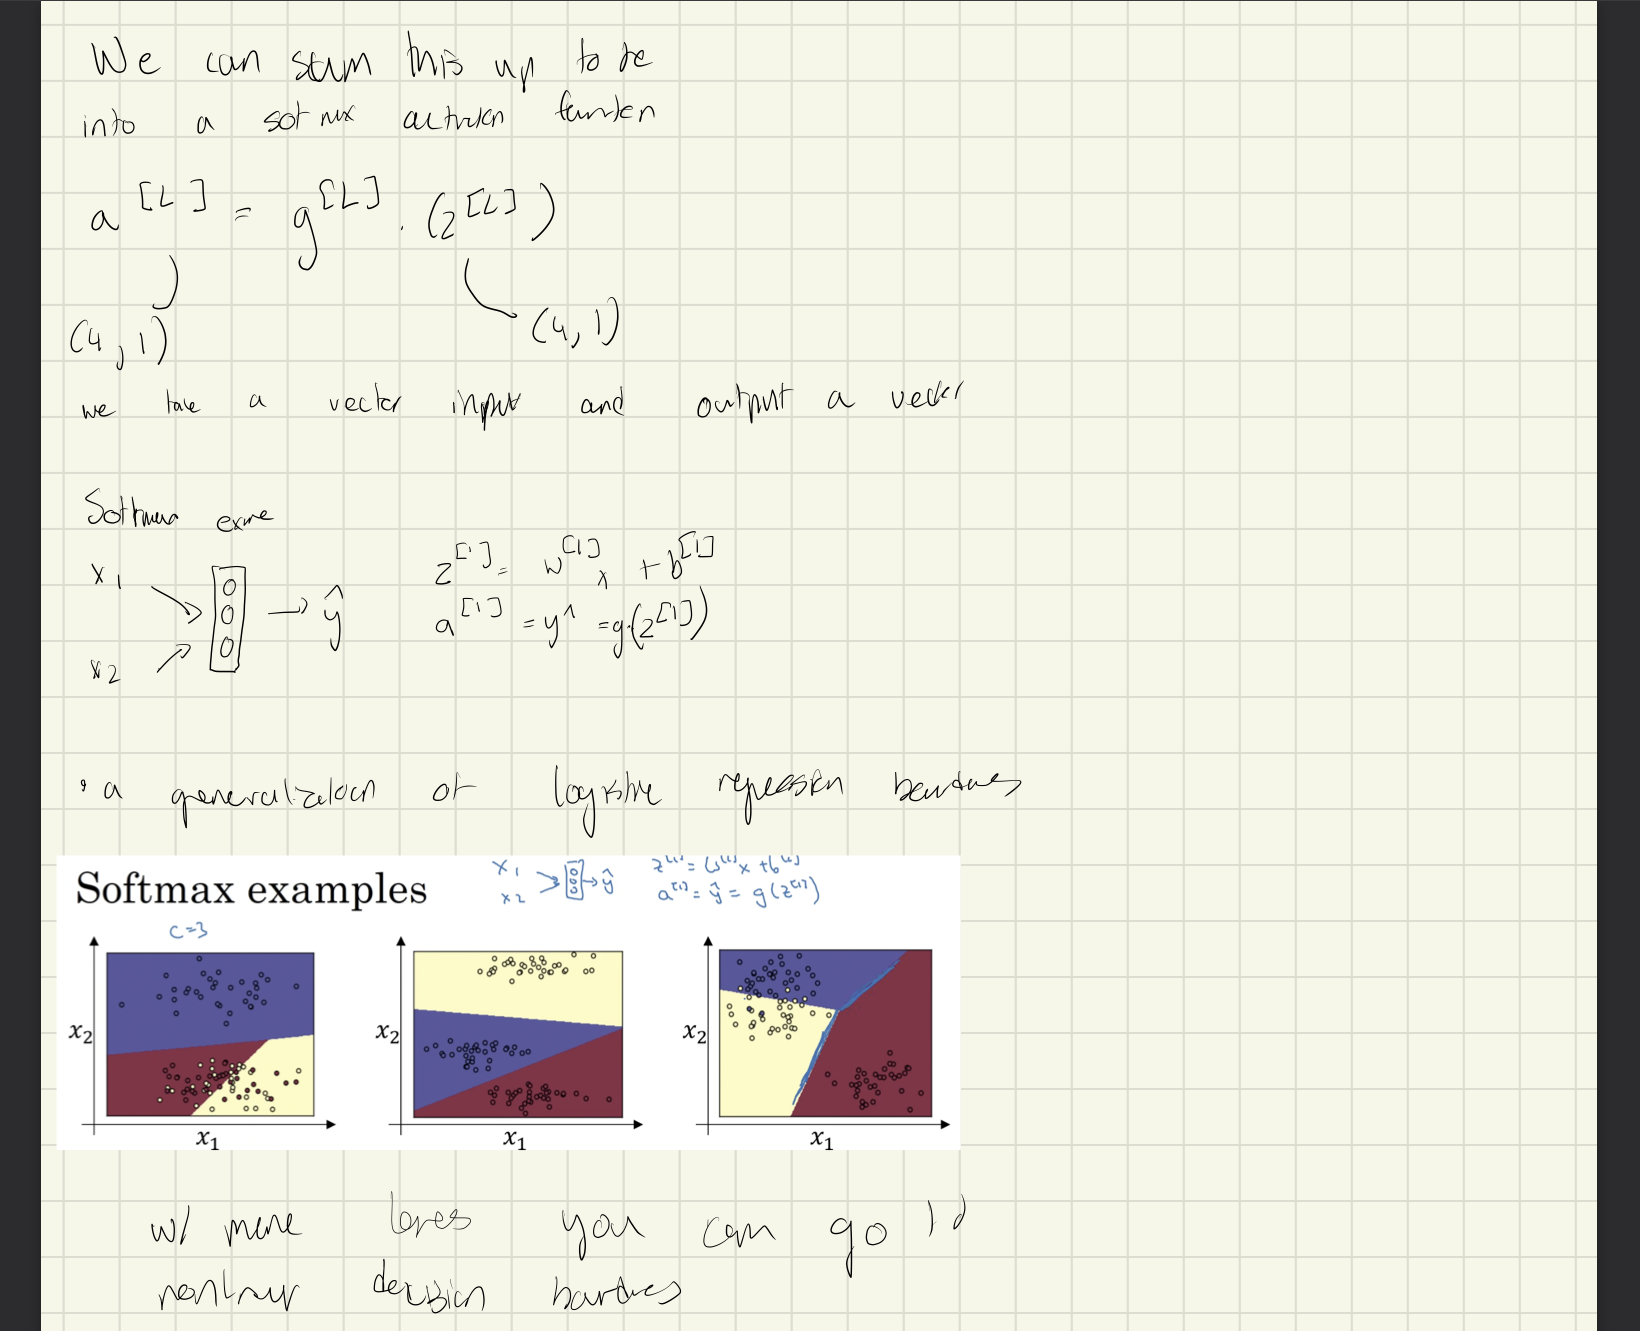 We can sum this up to be
into a softmax activation function
a[L] = g[L] . (z[L])
(4, 1)
(4, 1)
we take a vector input and output a vector
Softmax
x1
x2
→ ŷ
z[1] = w[1]x + b[1]
a[1] = y^ = g.(z[1])
• a generalization of logistic regression boundaries
Softmax examples
x1
x2
→ ŷ
z[1] = W[1]x + b[1]
a[1] = ŷ = g(z[1])
C=3
x2
x1
x2
x1
x2
x1
w/ more layers you can go
nonlinear decision boundaries